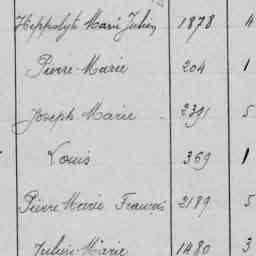 Hippolyte Marie Julien 1878 4
Pierre-Marie 204 1
Joseph Marie 2391 5
Louis 369 1
Pierre Marie François 2189 5
Julien-Marie 1480 3